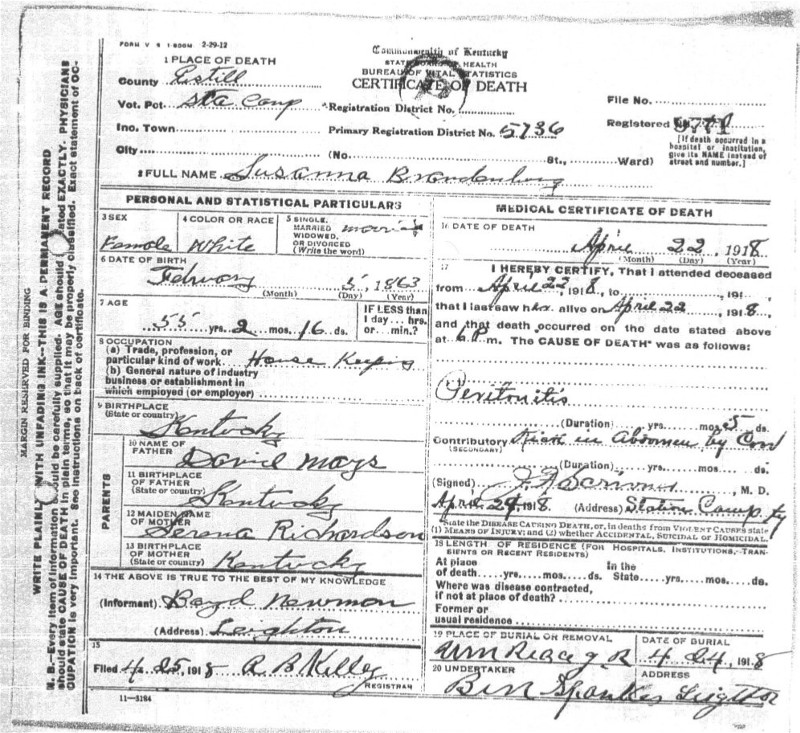 FORM V S 1 500M 2-29-12
Commonwealth of Kentucky
STATE BOARD OF HEALTH
BUREAU OF VITAL STATISTICS
CERTIFICATE OF DEATH
1 PLACE OF DEATH
County Estill
Vot. Pct. Sta Camp Registration District No.
Inc. Town Primary Registration District No. 5736
City (No. St., Ward)
File No.
Registered No.
[If death occurred in a
hospital or institution,
give its NAME instead of
street and number.]
2 FULL NAME Susanna Brandenburg
PERSONAL AND STATISTICAL PARTICULARS
3 SEX
Female
4 COLOR OR RACE
White
5 SINGLE,
MARRIED
WIDOWED,
OR DIVORCED
(Write the word)
married
6 DATE OF BIRTH
Februory 5, 1863
(Month) (Day) (Year)
7 AGE
55 yrs. 2 mos. 16 ds.
IF LESS than
1 day ... hrs.
or ... min.?
8 OCCUPATION
(a) Trade, profession, or
particular kind of work House Keeping
(b) General nature of industry
business or establishment in
which employed (or employer)
9 BIRTHPLACE
(State or country)
Kentucky
PARENTS
10 NAME OF
FATHER
David Mays
11 BIRTHPLACE
OF FATHER
(State or country)
Kentucky
12 MAIDEN NAME
OF MOTHER
Serena Richardson
13 BIRTHPLACE
OF MOTHER
(State or country)
Kentucky
14 THE ABOVE IS TRUE TO THE BEST OF MY KNOWLEDGE
(Informant) Boyd Newmon
(Address) Leighton
15
Filed 4 25, 1918 A B Kelley
REGISTRAR
11-3184
MEDICAL CERTIFICATE OF DEATH
16 DATE OF DEATH
April 22, 1918
(Month) (Day) (Year)
17
I HEREBY CERTIFY, That I attended deceased
from April 22, 1918, to , 191
that I last saw her alive on April 22, 1918
and that death occurred on the date stated above
at 6 m. The CAUSE OF DEATH was as follows:
Peritonitis
(Duration) yrs. mos. 5 ds.
Contributory Kick in Abdomen by Cow
(SECONDARY)
(Duration) yrs. mos. ds.
(Signed) M. D.
April 24, 1918. (Address) Station Camp Ky
State the DISEASE CAUSING DEATH, or, in deaths from VIOLENT CAUSES state
(1) MEANS OF INJURY; and (2) whether ACCIDENTAL, SUICIDAL OR HOMICIDAL.
18 LENGTH OF RESIDENCE (FOR HOSPITALS, INSTITUTIONS, TRAN-
SIENTS OR RECENT RESIDENTS)
At place In the
of death yrs. mos. ds. State yrs. mos. ds.
Where was disease contracted,
if not at place of death?
Former or
usual residence
19 PLACE OF BURIAL OR REMOVAL
Wm
DATE OF BURIAL
4 24, 1918
20 UNDERTAKER
Ben Sparkes
ADDRESS
MARGIN RESERVED FOR BINDING
WRITE PLAINLY WITH UNFADING INK—THIS IS A PERMANENT RECORD
N. B.—Every item of information should be carefully supplied. AGE should be stated EXACTLY. PHYSICIANS
should state CAUSE OF DEATH in plain terms, so that it may be properly classified. Exact statement of OC-
CUPATION is very important. See instructions on back of certificate.